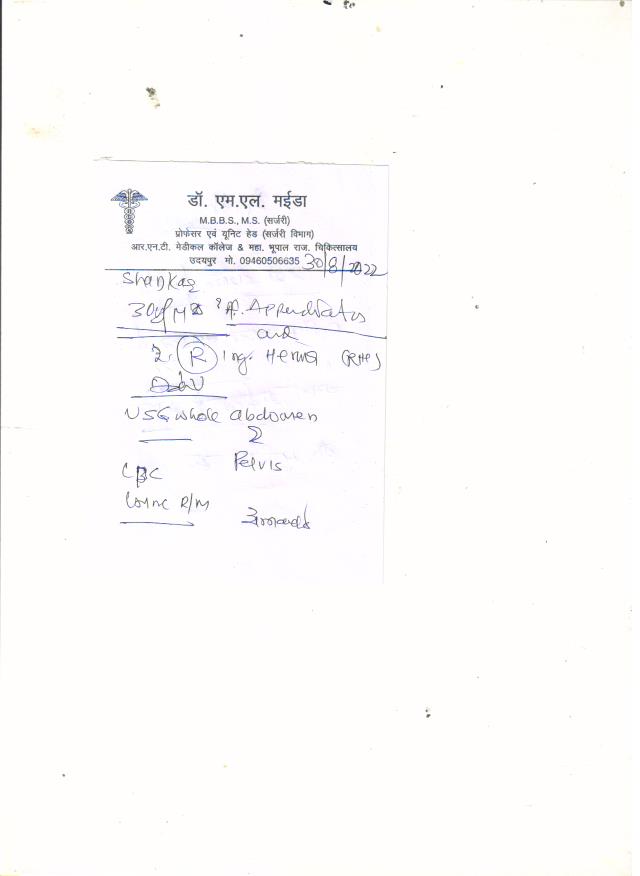 डॉ. एम.एल. मईडा
M.B.B.S., M.S. (सर्जरी)
प्रोफेसर एवं यूनिट हेड (सर्जरी विभाग)
आर.एन.टी. मेडीकल कॉलेज & महा. भूपाल राज. चिकित्सालय
उदयपुर मो. 09460506635 30/8/2022
Shankar
30y/M
and
2. R Ing. Hernia (RHS)
USG whole abdomen
2
Pelvis
CBC
Urine R/M